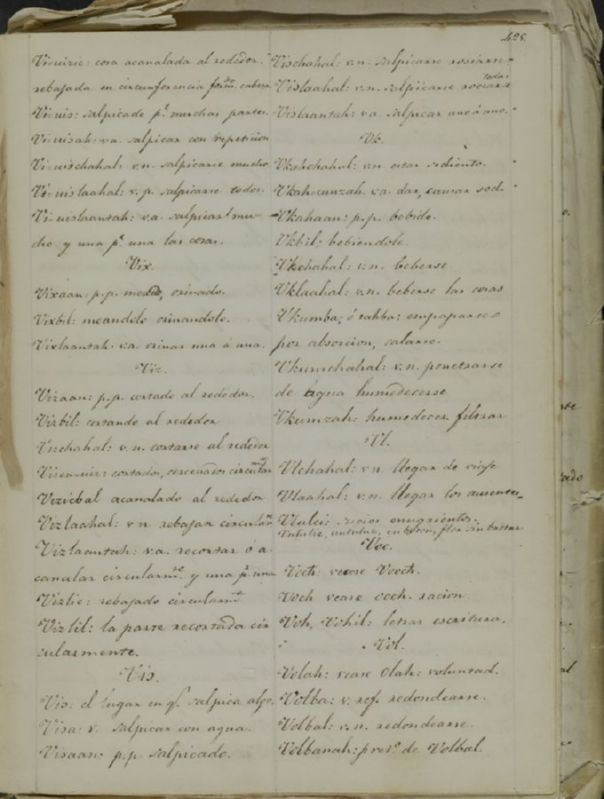 428.
Vicuizic: cosa acanalada al rededor.
rebajada en circunferencia
Vicuis: salpicado p.r muchas partes.
va. salpicar con repeticion
v.n. salpicarse mucho
v.p. salpicarse todos.
v.a. salpicar mu-
cho y una p.r una las cosas.
Vix.
Vixaan: p.p. meado, orinado.
Vixbil: meandolo orinandolo.
Vixlaantah: v.a. orinar una á una.
Viz.
Vizaan: p.p. cortado al rededor.
Vizbil: cortando al rededor
Vizchahal: v.n. cortarse al rededor
cortados, cercenados
Vizicbal acanalado al rededor
Vizlaahal: v.n. rebajar
Vizlaantah: v.a. recortar ó a-
canalar circularm.te y una p.r una
Viztic: rebajado circularm.te
Viztil: la parte recortada cir
cularmente.
Vis.
Vis: el lugar en q.e salpica algo.
Visa: v. salpicar con agua.
Visaan: p.p. salpicado.
Vischahal: v.n. salpicarse rosiarse
Vislaahal: v.n. salpicarse rociarse
todos
Vislaantah: v.a. salpicar uno á uno.
Vk.
Vkahchahal: v.n. estar sediento.
Vkah-cunzah. v.a. dar, causar sed
Vkahaan: p.p. bebido.
Vkbil: bebiendolo.
Vkchahal: v.n. beberse
Vklaahal: v.n. beberse las cosas
Vkumba, ó empaparse
por absorcion, calarse.
v.n. penetrarse
de agua humedecerse
Vkumzah: humedecer, filtrar
Vl.
Vlchahal: v.n. llegar de viaje
Vlaahal: v.n. llegar los ausentes
Voc.
Voch: vease Vooch.
Voch vease ooch. racion
Voh, Vohil: letras escritura.
Vol.
Volah: vease Olah: voluntad.
Volba: v. ref. redondearse.
Volbal: v.n. redondearse.
Volbanah: pret.o de Volbal.